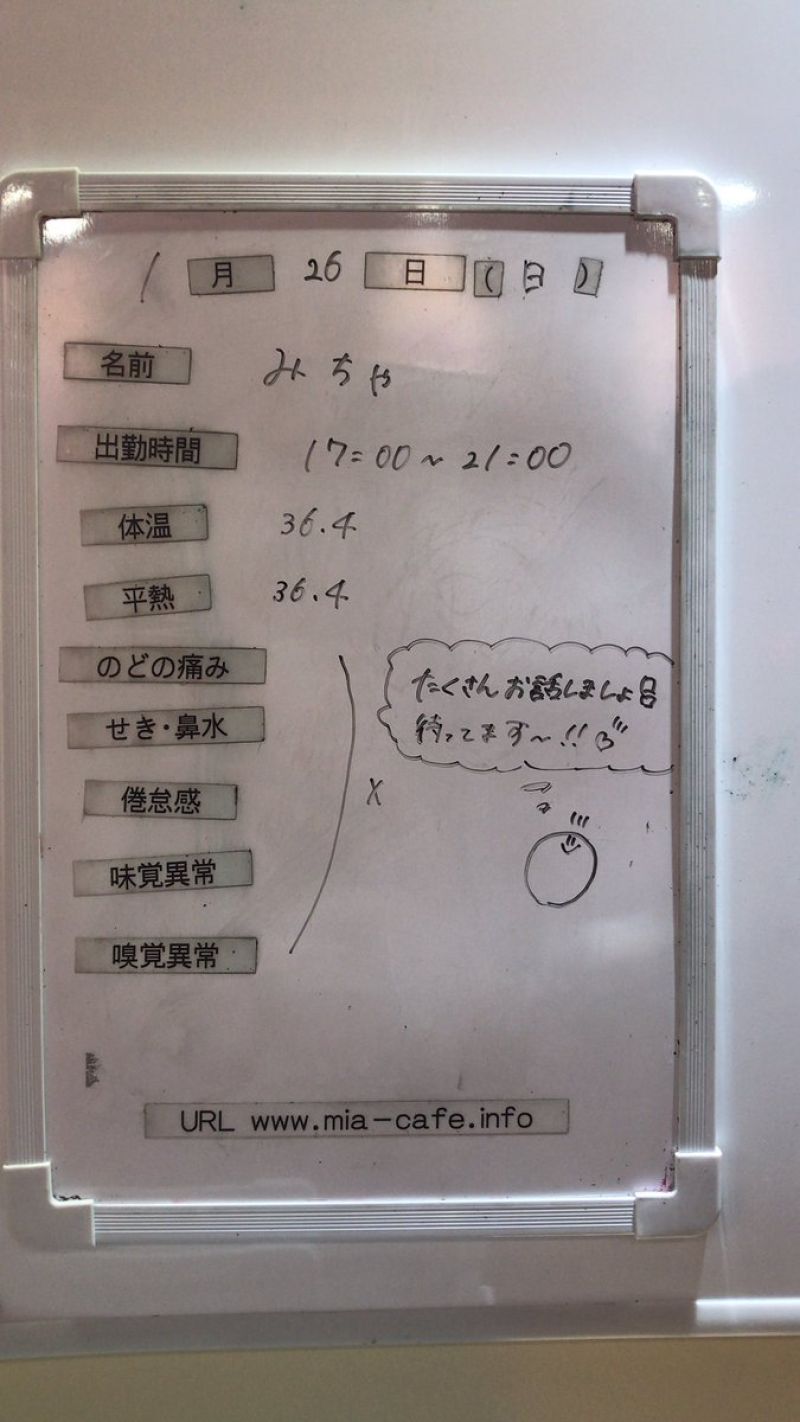 1月26日(日)
名前 みちゃ
出勤時間 17:00~21:00
体温 36.4
平熱 36.4
のどの痛み
せき・鼻水
倦怠感 X
味覚異常
嗅覚異常
たくさんお話しましょ
待ってます〜!!
URL www.mia-cafe.info